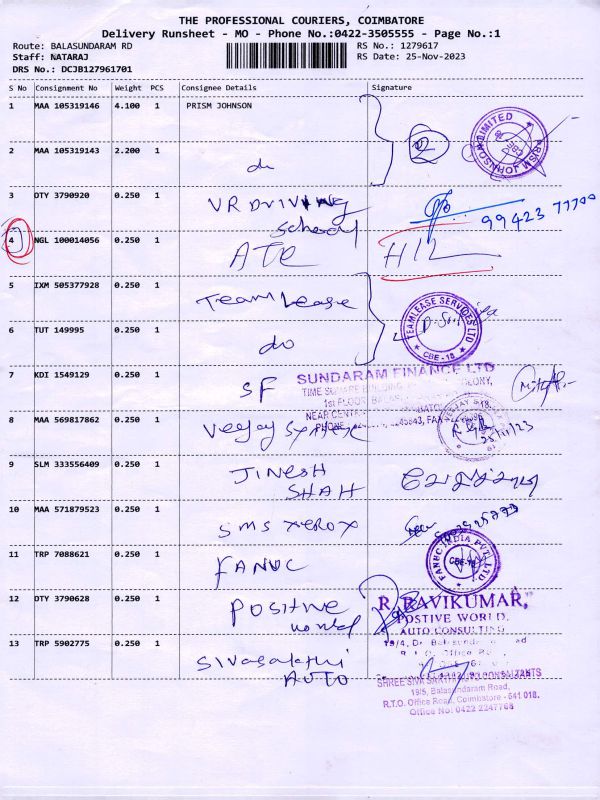 THE PROFESSIONAL COURIERS, COIMBATORE
Delivery Runsheet - MO - Phone No.:0422-3505555 - Page No.:1
Route: BALASUNDARAM RD RS No.: 1279617
Staff: NATARAJ RS Date: 25-Nov-2023
DRS No.: DCJB127961701
S No Consignment No Weight PCS Consignee Details Signature
1 MAA 105319146 4.100 1 PRISM JOHNSON 2
2 MAA 105319143 2.200 1 do
3 DTY 3790920 0.250 1 VR Driving School 99423 77700
4 NGL 100014056 0.250 1 ATC H12
5 IXM 505377928 0.250 1 Team Lease
TEAMLEASE SERVICES LTD
CBE-18
6 TUT 149995 0.250 1 do
7 KDI 1549129 0.250 1 SF
SUNDARAM FINANCE LTD
1st FLOOR,
8 MAA 569817862 0.250 1 Veejay
25/11/23
9 SLM 333556409 0.250 1 JINESH SHAH
10 MAA 571879523 0.250 1 SMS XEROX
11 TRP 7088621 0.250 1 FANUC
FANUC INDIA PVT LTD
CBE-18
12 DTY 3790628 0.250 1 Positive
R. RAVIKUMAR,
POSTIVE WORLD.
AUTO CONSULTING
13 TRP 5902775 0.250 1 Sivasakthi AUTO
SHREE SIVA SAKTHI AUTO CONSULTANTS
19/5, Balasundaram Road,
R.T.O. Office Road, Coimbatore - 641 018.
Office No: 0422 2247768